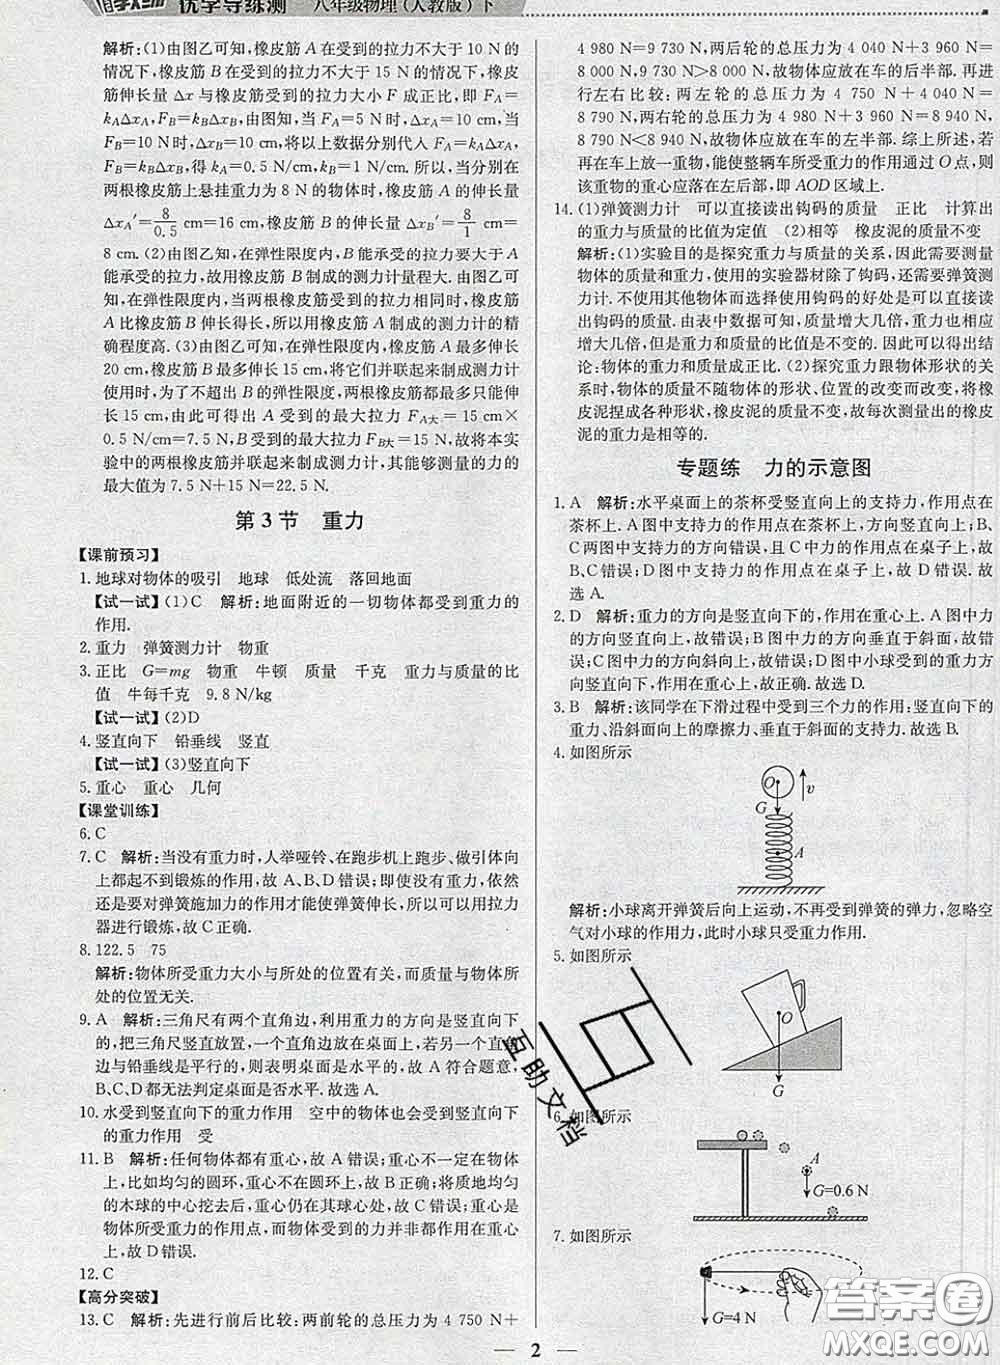 优学导练测 八年级物理(人教版)下
解析:(1)由图乙可知,橡皮筋A在受到的拉力不大于10 N的
情况下,橡皮筋B在受到的拉力不大于15 N的情况下,橡皮
筋伸长量Δx与橡皮筋受到的拉力大小F成正比,即F_A=
k_AΔx_A,F_B=k_BΔx_B,由图知,当F_A=5 N时,Δx_A=10 cm,当
F_B=10 N时,Δx_B=10 cm,将以上数据分别代入F_A=k_AΔx_A、
F_B=k_BΔx_B,得k_A=0.5 N/cm,k_B=1 N/cm.所以,当分别在
两根橡皮筋上悬挂重力为8 N的物体时,橡皮筋A的伸长量
Δx_A′=8/0.5 cm=16 cm,橡皮筋B的伸长量Δx_B′=8/1 cm=
8 cm.(2)由图乙可知,在弹性限度内,B能承受的拉力要大于A
能承受的拉力,故用橡皮筋B制成的测力计量程大.由图乙可
知,在弹性限度内,当两根橡皮筋所受的拉力相同时,橡皮筋
A比橡皮筋B伸长得长,所以用橡皮筋A制成的测力计的精
确程度高.(3)由图乙可知,在弹性限度内,橡皮筋A最多伸长
20 cm,橡皮筋B最多伸长15 cm,将它们并联起来制成测力计
时,为了不超出B的弹性限度,两根橡皮筋都最多只能伸
长15 cm,由此可得出A受到的最大拉力F_A大=15 cm×
0.5 N/cm=7.5 N,B受到的最大拉力F_B大=15 N,故将本实
验中的两根橡皮筋并联起来制成测力计,其所能测量的力的
最大值为7.5 N+15 N=22.5 N.
第3节 重力
【课前预习】
1.地球对物体的吸引 地球 低处流 落回地面
【试一试】(1)C 解析:地面附近的一切物体都受到重力的
作用.
2.重力 弹簧测力计 物重
3.正比 G=mg 物重 牛顿 质量 千克 重力与质量的比
值 牛每千克 9.8 N/kg
【试一试】(2)D
4.竖直向下 铅垂线 竖直
【试一试】(3)竖直向下
5.重心 重心 几何
【课堂训练】
6.C
7.C 解析:当没有重力时,人举哑铃、在跑步机上跑步、做引体向
上都起不到锻炼的作用,故A、B、D错误;即使没有重力,依然
还是要对弹簧施加力的作用才能使弹簧伸长,所以可以用拉力
器进行锻炼,故C正确.
8.122.5 75
解析:物体所受重力大小与所处的位置有关,而质量与物体所
处的位置无关.
9.A 解析:三角尺有两个直角边,利用重力的方向是竖直向下
的,把三角尺竖直放置,一个直角边放在桌面上,若另一个直角
边与铅垂线是平行的,则表明桌面是水平的,故A符合题意,
B、C、D都无法判定桌面是否水平.故选A.
10.水受到竖直向下的重力作用 空中的物体也会受到竖直向下
的重力作用 受
11.B 解析:任何物体都有重心,故A错误;重心不一定在物体
上,比如均匀的圆环,重心不在圆环上,故B正确;将质地均匀
的木球的中心挖去后,重心仍在其球心处,故C错误;重心是
物体所受重力的作用点,而物体受到的力并非都作用在重心
上,故D错误.
12.C
【高分突破】
13.C 解析:先进行前后比较:两前轮的总压力为4 750 N+
4 980 N=9 730 N,两后轮的总压力为4 040 N+3 960 N=
8 000 N,9 730 N>8 000 N,故物体应放在车的后半部.再进
行左右比较:两左轮的总压力为4 750 N+4 040 N=
8 790 N,两右轮的总压力为4 980 N+3 960 N=8 940 N,
8 790 N<8 940 N,故物体应放在车的左半部.综上所述,若
再在车上放一重物,能使整辆车所受重力的作用通过O点,则
该重物的重心应落在左后部,即AOD区域上.
14.(1)弹簧测力计 可以直接读出钩码的质量 正比 计算出
的重力与质量的比值为定值 (2)相等 橡皮泥的质量不变
解析:(1)实验目的是探究重力与质量的关系,因此需要测量
物体的质量和重力,使用的实验器材除了钩码,还需要弹簧测
力计.不使用其他物体而选择使用钩码的好处是可以直接读
出钩码的质量.由表中数据可知,质量增大几倍,重力也相应
增大几倍,但是重力和质量的比值是不变的.因此可以得出结
论:物体的重力和质量成正比.(2)探究重力跟物体形状的关
系时,物体的质量不随物体的形状、位置的改变而改变,将橡
皮泥捏成各种形状,橡皮泥的质量不变,故每次测量出的橡皮
泥的重力是相等的.
专题练 力的示意图
1.A 解析:水平桌面上的茶杯受竖直向上的支持力,作用点在
茶杯上.A图中支持力的作用点在茶杯上,方向竖直向上;B、
C两图中支持力的方向错误,且C图中作用点在桌子上,故
B、C错误;D图中支持力的作用点在桌子上,故D错误.故
选A.
2.D 解析:重力的方向是竖直向下的,作用在重心上.A图中力
的方向竖直向上,故错误;B图中力的方向垂直于斜面,故错
误;C图中力的方向斜向上,故错误;D图中小球受到的重力方
向竖直向下,故正确.故选D.
3.B 解析:该同学在下滑过程中受到三个力的作用:竖直向下的
重力、沿斜面向上的摩擦力、垂直于斜面的支持力.故选B.
4.如图所示
O
G
v
A
解析:小球离开弹簧后向上运动,不再受到弹簧的弹力,忽略空
气对小球的作用力,此时小球只受重力作用.
5.如图所示
O
G
6.如图所示
A
G=0.6 N
7.如图所示
G=4 N
互助文档
答案圈
MXQE.COM
2